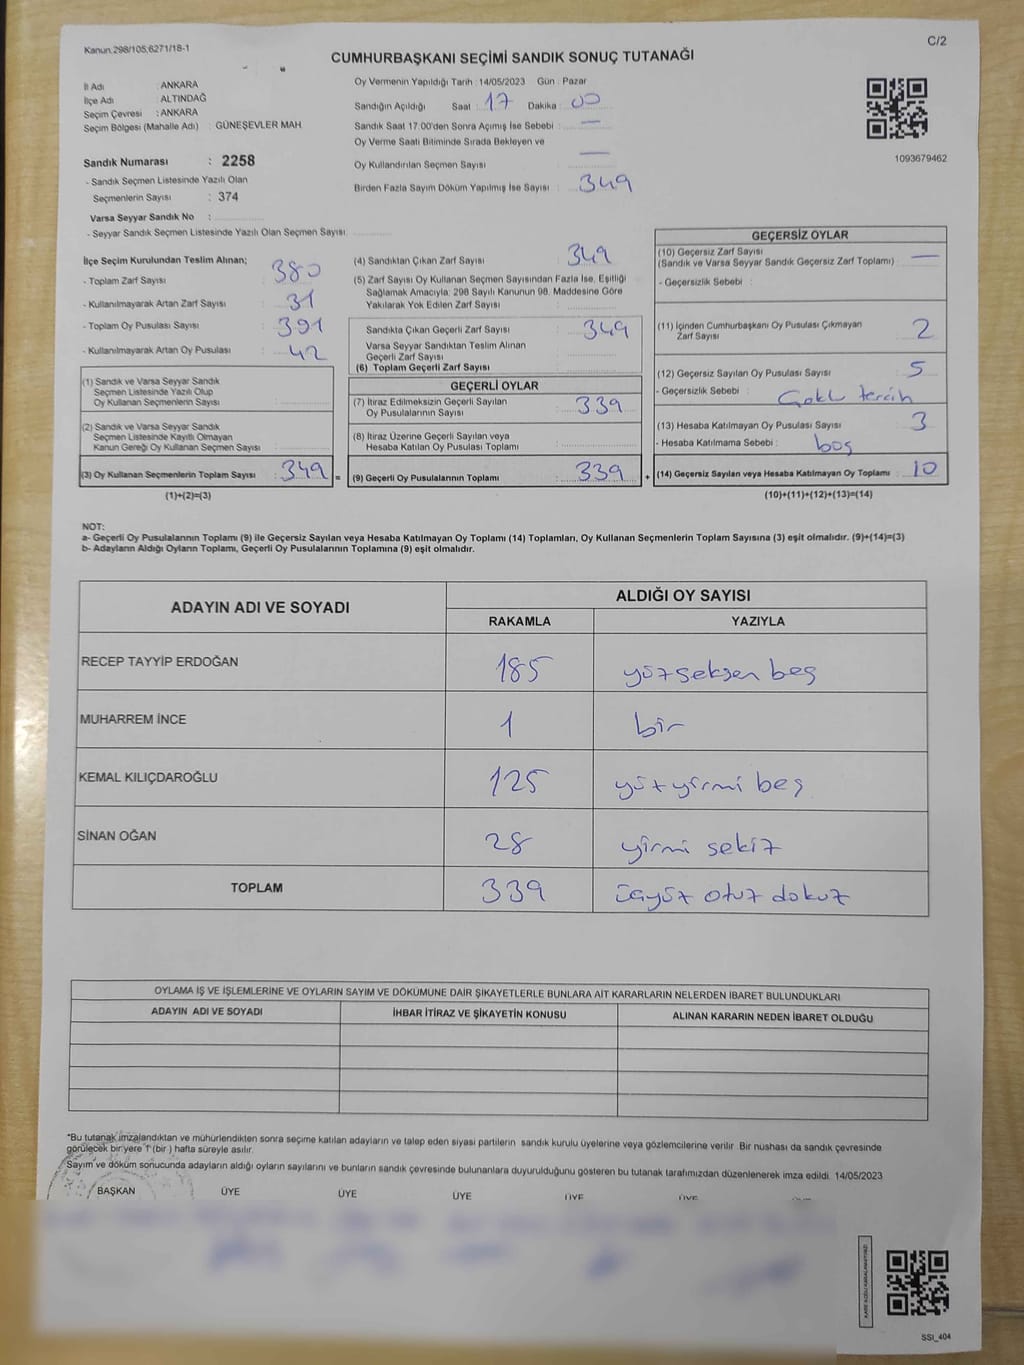 Kanun:298/105;6271/18-1
C/2
CUMHURBAŞKANI SEÇİMİ SANDIK SONUÇ TUTANAĞI
İl Adı : ANKARA
İlçe Adı : ALTINDAĞ
Seçim Çevresi : ANKARA
Seçim Bölgesi (Mahalle Adı) : GÜNEŞEVLER MAH
Sandık Numarası : 2258
- Sandık Seçmen Listesinde Yazılı Olan
Seçmenlerin Sayısı : 374
Varsa Seyyar Sandık No :
- Seyyar Sandık Seçmen Listesinde Yazılı Olan Seçmen Sayısı:
Oy Vermenin Yapıldığı Tarih : 14/05/2023 Gün : Pazar
Sandığın Açıldığı Saat : 17 Dakika : 00
Sandık Saat 17.00'den Sonra Açımış İse Sebebi : —
Oy Verme Saati Bitiminde Sırada Bekleyen ve
Oy Kullandırılan Seçmen Sayısı —
Birden Fazla Sayım Döküm Yapılmış İse Sayısı : 349
1093679462
İlçe Seçim Kurulundan Teslim Alınan;
- Toplam Zarf Sayısı : 380
- Kullanılmayarak Artan Zarf Sayısı : 31
- Toplam Oy Pusulası Sayısı : 391
- Kullanılmayarak Artan Oy Pusulası : 42
(1) Sandık ve Varsa Seyyar Sandık
Seçmen Listesinde Yazılı Olup
Oy Kullanan Seçmenlerin Sayısı :
(2) Sandık ve Varsa Seyyar Sandık
Seçmen Listesinde Kayıtlı Olmayan
Kanun Gereği Oy Kullanan Seçmen Sayısı :
(3) Oy Kullanan Seçmenlerin Toplam Sayısı : 349 =
(1)+(2)=(3)
(4) Sandıktan Çıkan Zarf Sayısı : 349
(5) Zarf Sayısı Oy Kullanan Seçmen Sayısından Fazla İse, Eşitliği
Sağlamak Amacıyla; 298 Sayılı Kanunun 98. Maddesine Göre
Yakılarak Yok Edilen Zarf Sayısı :
Sandıkta Çıkan Geçerli Zarf Sayısı : 349
Varsa Seyyar Sandıktan Teslim Alınan
Geçerli Zarf Sayısı :
(6) Toplam Geçerli Zarf Sayısı :
GEÇERLİ OYLAR
(7) İtiraz Edilmeksizin Geçerli Sayılan
Oy Pusulalarının Sayısı : 339
(8) İtiraz Üzerine Geçerli Sayılan veya
Hesaba Katılan Oy Pusulası Toplamı :
(9) Geçerli Oy Pusulalarının Toplamı : 339 +
GEÇERSİZ OYLAR
(10) Geçersiz Zarf Sayısı : —
(Sandık ve Varsa Seyyar Sandık Geçersiz Zarf Toplamı)
- Geçersizlik Sebebi :
(11) İçinden Cumhurbaşkanı Oy Pusulası Çıkmayan
Zarf Sayısı : 2
(12) Geçersiz Sayılan Oy Pusulası Sayısı : 5
- Geçersizlik Sebebi : Çoklu tercih
(13) Hesaba Katılmayan Oy Pusulası Sayısı : 3
- Hesaba Katılmama Sebebi : boş
(14) Geçersiz Sayılan veya Hesaba Katılmayan Oy Toplamı : 10
(10)+(11)+(12)+(13)=(14)
NOT:
a- Geçerli Oy Pusulalarının Toplamı (9) ile Geçersiz Sayılan veya Hesaba Katılmayan Oy Toplamı (14) Toplamları, Oy Kullanan Seçmenlerin Toplam Sayısına (3) eşit olmalıdır. (9)+(14)=(3)
b- Adayların Aldığı Oyların Toplamı, Geçerli Oy Pusulalarının Toplamına (9) eşit olmalıdır.
ADAYIN ADI VE SOYADI ALDIĞI OY SAYISI
RAKAMLA YAZIYLA
RECEP TAYYİP ERDOĞAN 185 yüzseksen beş
MUHARREM İNCE 1 bir
KEMAL KILIÇDAROĞLU 125 yüzyirmi beş
SİNAN OĞAN 28 yirmi sekiz
TOPLAM 339 üçyüz otuz dokuz
OYLAMA İŞ VE İŞLEMLERİNE VE OYLARIN SAYIM VE DÖKÜMÜNE DAİR ŞİKAYETLERLE BUNLARA AİT KARARLARIN NELERDEN İBARET BULUNDUKLARI
ADAYIN ADI VE SOYADI İHBAR İTİRAZ VE ŞİKAYETİN KONUSU ALINAN KARARIN NEDEN İBARET OLDUĞU
*Bu tutanak imzalandıktan ve mühürlendikten sonra seçime katılan adayların ve talep eden siyasi partilerin sandık kurulu üyelerine veya gözlemcilerine verilir. Bir nüshası da sandık çevresinde
görülecek bir yere 1 (bir ) hafta süreyle asılır.
Sayım ve döküm sonucunda adayların aldığı oyların sayılarını ve bunların sandık çevresinde bulunanlara duyurulduğunu gösteren bu tutanak tarafımızdan düzenlenerek imza edildi. 14/05/2023
BAŞKAN ÜYE ÜYE ÜYE ÜYE ÜYE ÜYE
SSI_404